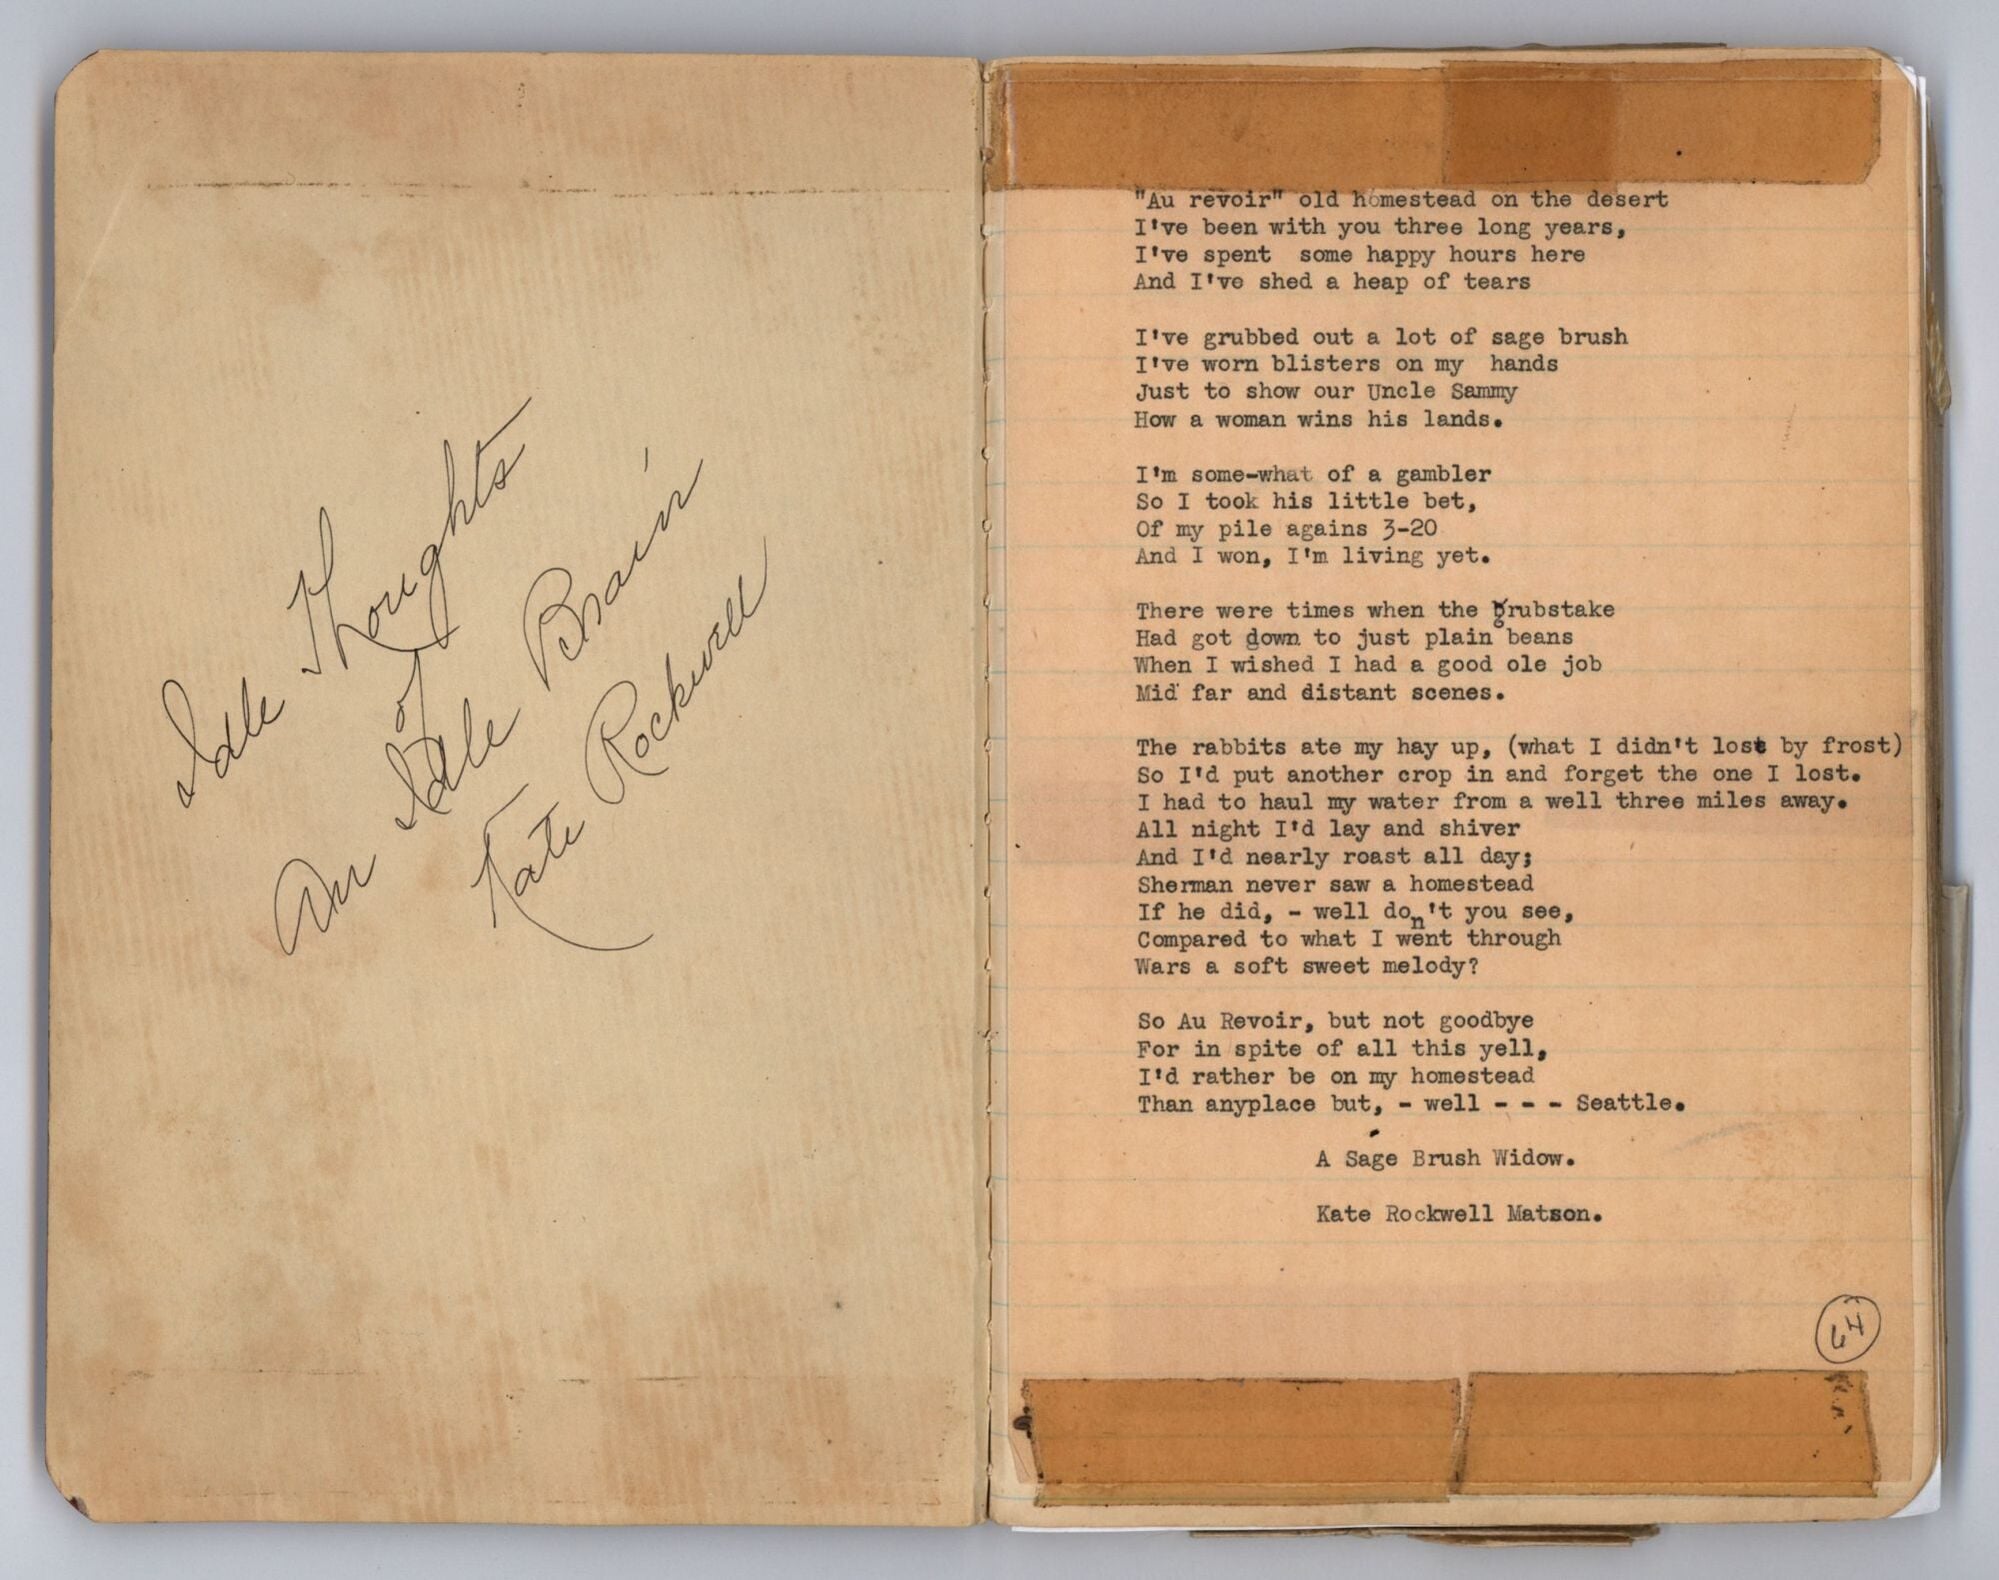 Idle Thoughts
of
An Idle Brain
Kate Rockwell
"Au revoir" old homestead on the desert
I've been with you three long years,
I've spent some happy hours here
And I've shed a heap of tears
I've grubbed out a lot of sage brush
I've worn blisters on my hands
Just to show our Uncle Sammy
How a woman wins his lands.
I'm some-what of a gambler
So I took his little bet,
Of my pile agains 3-20
And I won, I'm living yet.
There were times when the grubstake
Had got down to just plain beans
When I wished I had a good ole job
Mid far and distant scenes.
The rabbits ate my hay up, (what I didn't lost by frost)
So I'd put another crop in and forget the one I lost.
I had to haul my water from a well three miles away.
All night I'd lay and shiver
And I'd nearly roast all day;
Sherman never saw a homestead
If he did, - well don't you see,
Compared to what I went through
Wars a soft sweet melody?
So Au Revoir, but not goodbye
For in spite of all this yell,
I'd rather be on my homestead
Than anyplace but, - well - - - Seattle.
A Sage Brush Widow.
Kate Rockwell Matson.